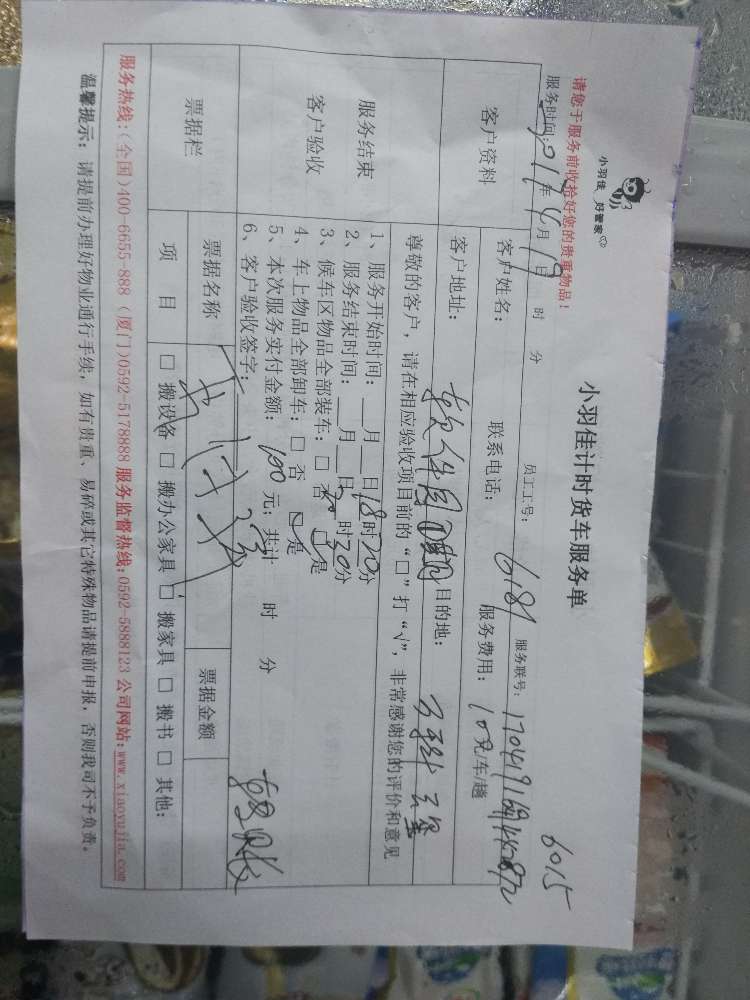 小羽佳 好管家
小羽佳计时货车服务单
6015
请您于服务前收拾好您的贵重物品！
服务时间：2017年4月19日 时 分 员工工号：6181 服务联号：
客户资料
客户姓名： 联系电话： 服务费用：100元/车/趟
客户地址：软件园 目的地：
尊敬的客户，请在相应验收项目前的“□”打“√”，非常感谢您的评价和意见
服务结束
客户验收
1、服务开始时间：__月__日18时20分
2、服务结束时间：__月__日20时30分
3、候车区物品全部装车：□ 否 □ 是
4、车上物品全部卸车：□ 否 □ 是
5、本次服务实付金额：100元；共计 时 分
6、客户验收签字：
票据栏
票据名称 票据金额
项 目 □ 搬设备 □ 搬办公家具 □ 搬家具 □ 搬书 □ 其他：
服务热线：(全国)400-6655-888 (厦门)0592-5178888 服务监督热线：0592-5888123 公司网站：www.xiaoyujia.com
温馨提示：请提前办理好物业通行手续，如有贵重、易碎或其它特殊物品请提前申报，否则我司不予负责。